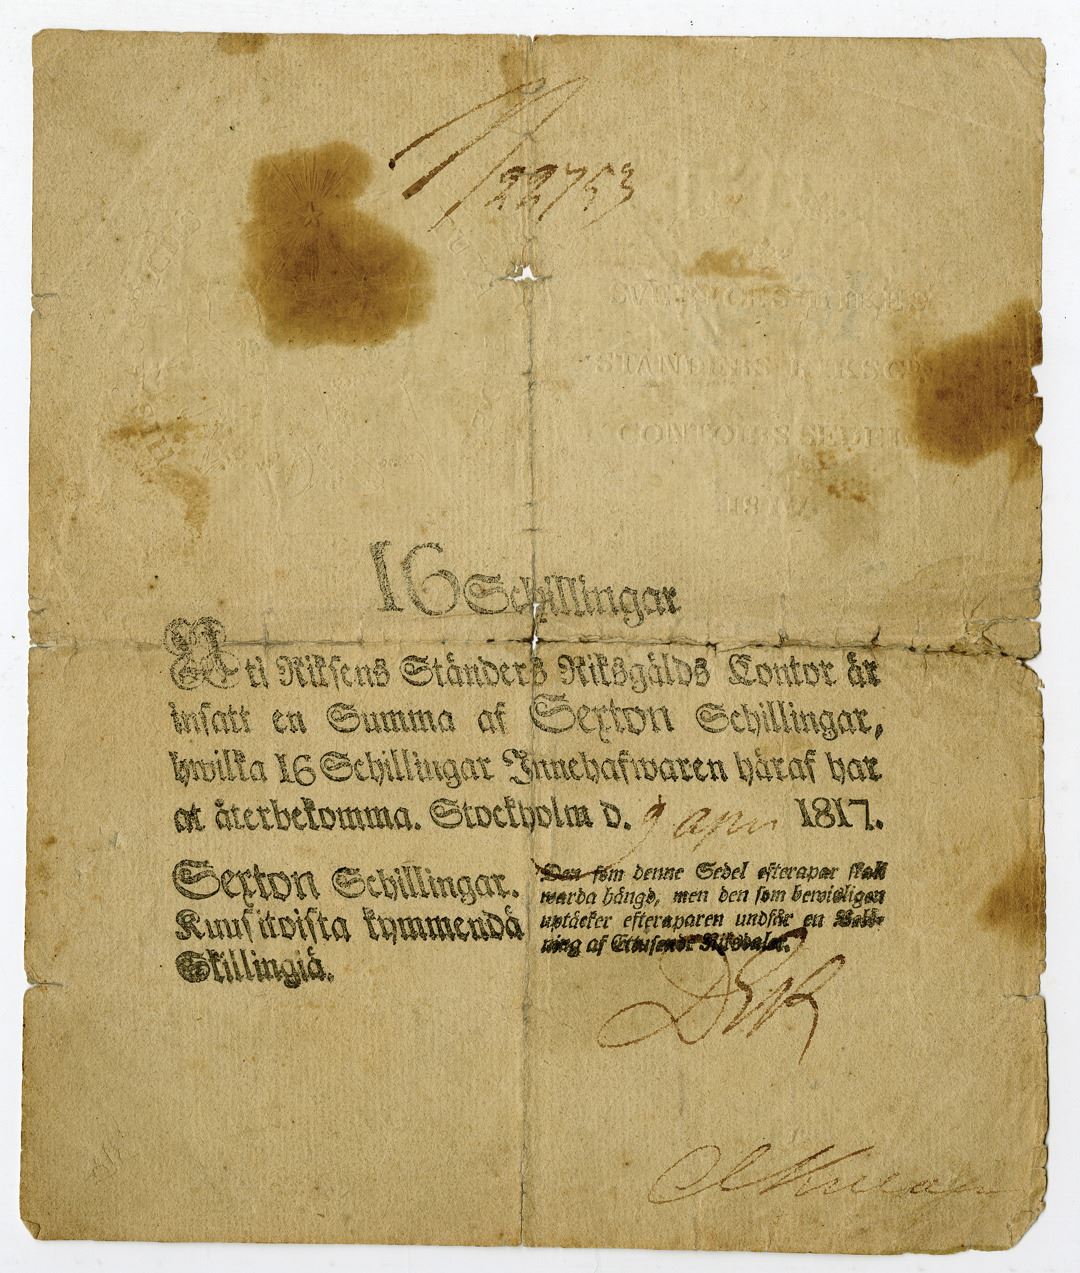 22753
SVERIGES RIKES
STÄNDERS RIKSGS
CONTOIRS SEDEL
16 Schillingar
Uti Riksens Ständers Riksgälds Contor är
insatt en Summa af Sexton Schillingar,
hwilka 16 Schillingar Innehafwaren häraf har
at återbekomma. Stockholm d. 9 apr 1817.
Sexton Schillingar.
Kuusitoista kymmendä
Skillingiä.
Den som denne Sedel efterapar skall
warda hängd, men den som bewisligen
uptäcker efteraparen undfår en Belö-
ning af Ettusende Riksdaler.